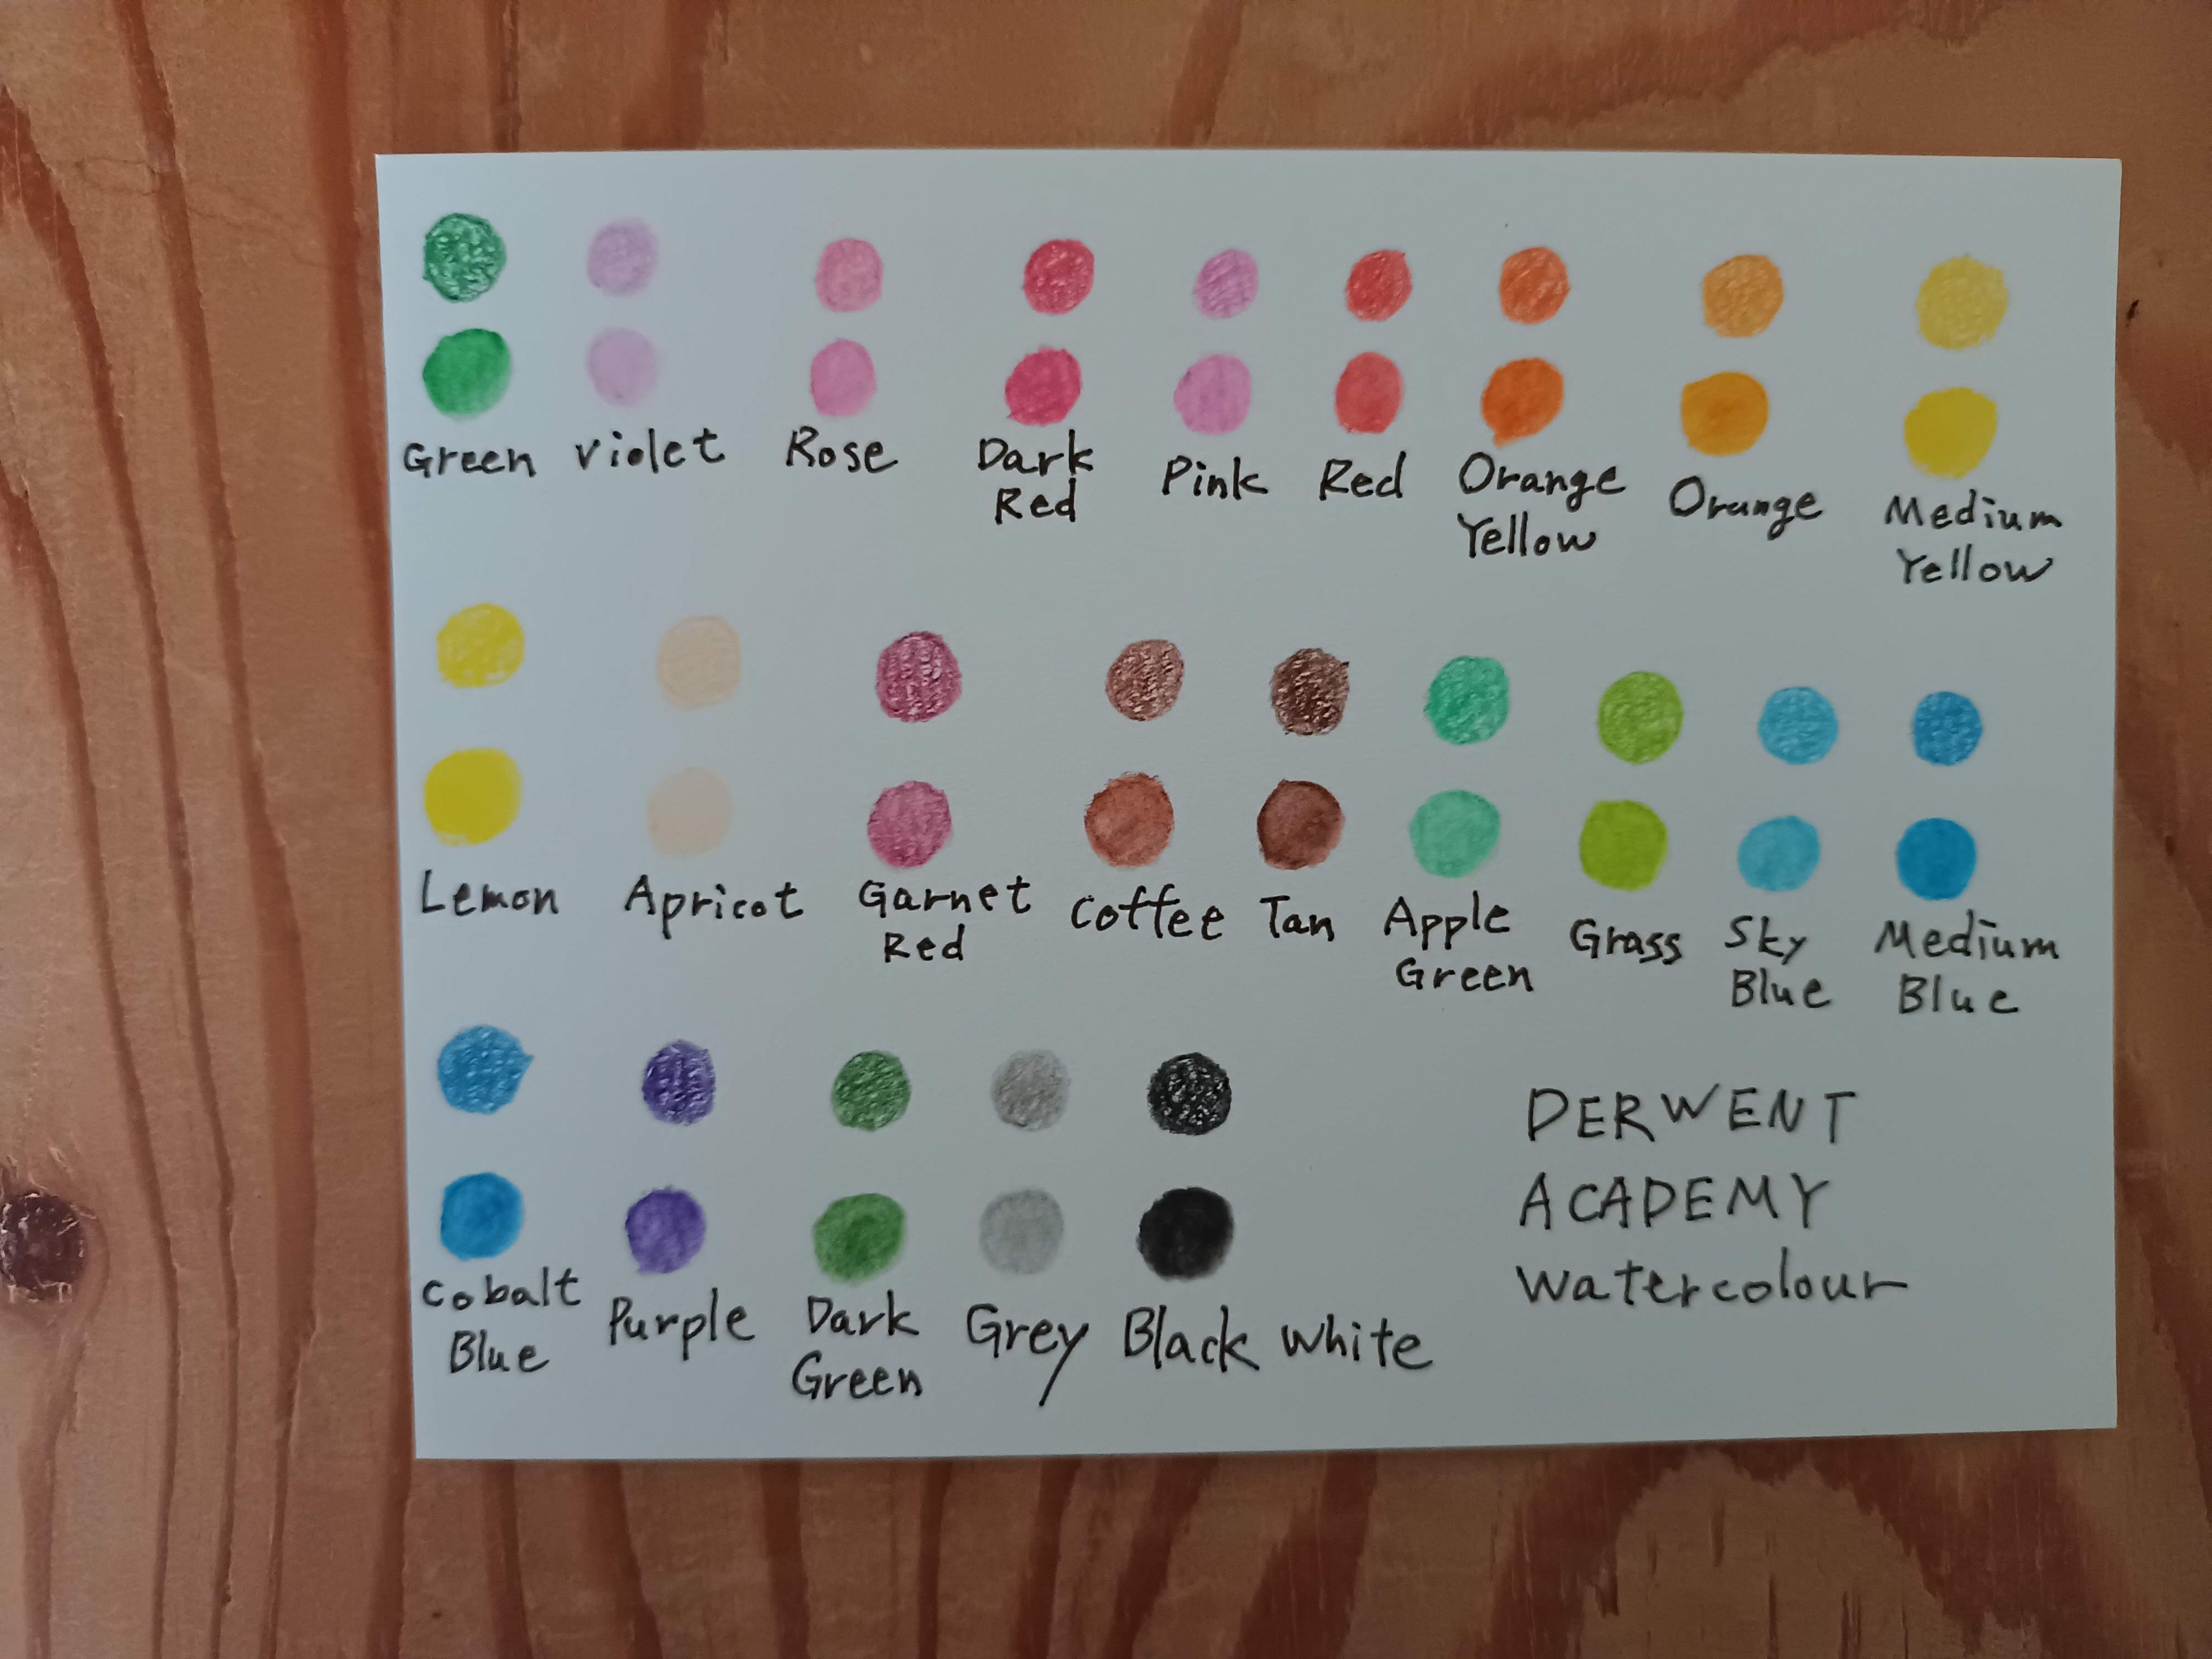 Green violet Rose Dark Red Pink Red Orange Yellow Orange Medium Yellow
Lemon Apricot Garnet Red Coffee Tan Apple Green Grass Sky Blue Medium Blue
Cobalt Blue Purple Dark Green Grey Black White
DERWENT
ACADEMY
Watercolour